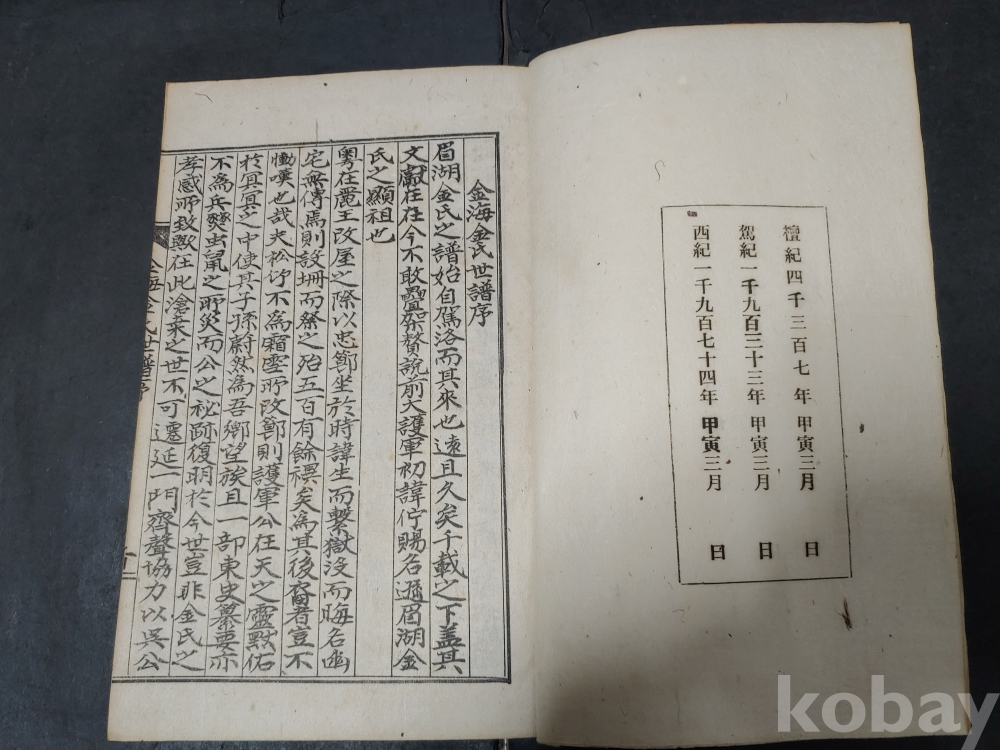 檀紀四千三百七年 甲寅三月 日
駕紀一千九百三十三年 甲寅三月 日
西紀一千九百七十四年 甲寅三月 日
金海金氏世譜序
眉湖金氏之譜始自駕洛而其來也遠且久矣千載之下盖其
文獻在在今不敢疊架贅說前大護軍初諱佇賜名遯眉湖金
氏之顯祖也
粤在麗王改屋之際以忠節坐於時諱生而繫獄没而晦名幽
宅無傳焉則設壇而祭之殆五百有餘禩矣為其後裔者豈不
慟嘆也哉夫松竹不為霜雪所改節則護軍公在天之靈黙佑
於冥冥之中使其子孫蔚然為吾鄕望族且一部東史纂要亦
不為兵燹虫鼠之所災而公之秘跡復明於今世豈非金氏之
孝感所致歟在此滄桑之世不可遷延一門齊聲協力以吳公
金海金氏世譜序
kobay